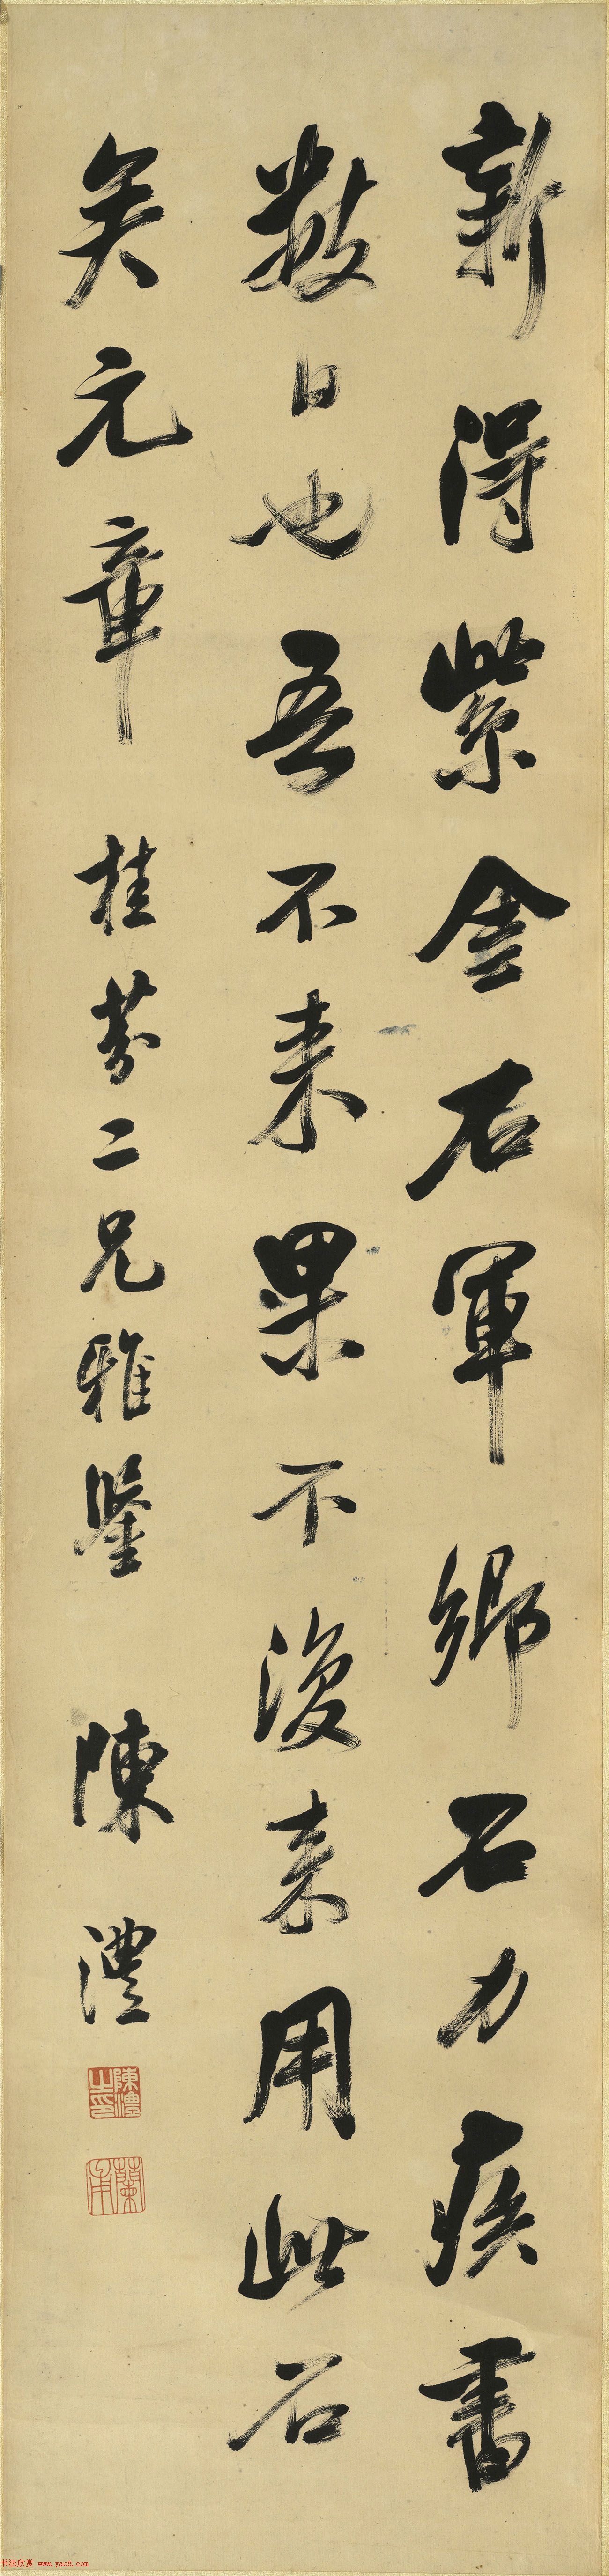 新得紫金石右軍鄉石力疾書
數日也吾不來果不復來用此石
矣元章
桂芬二兄雅鑒
陳澧
陳澧之印
蘭甫
书法欣赏 www.yac8.com